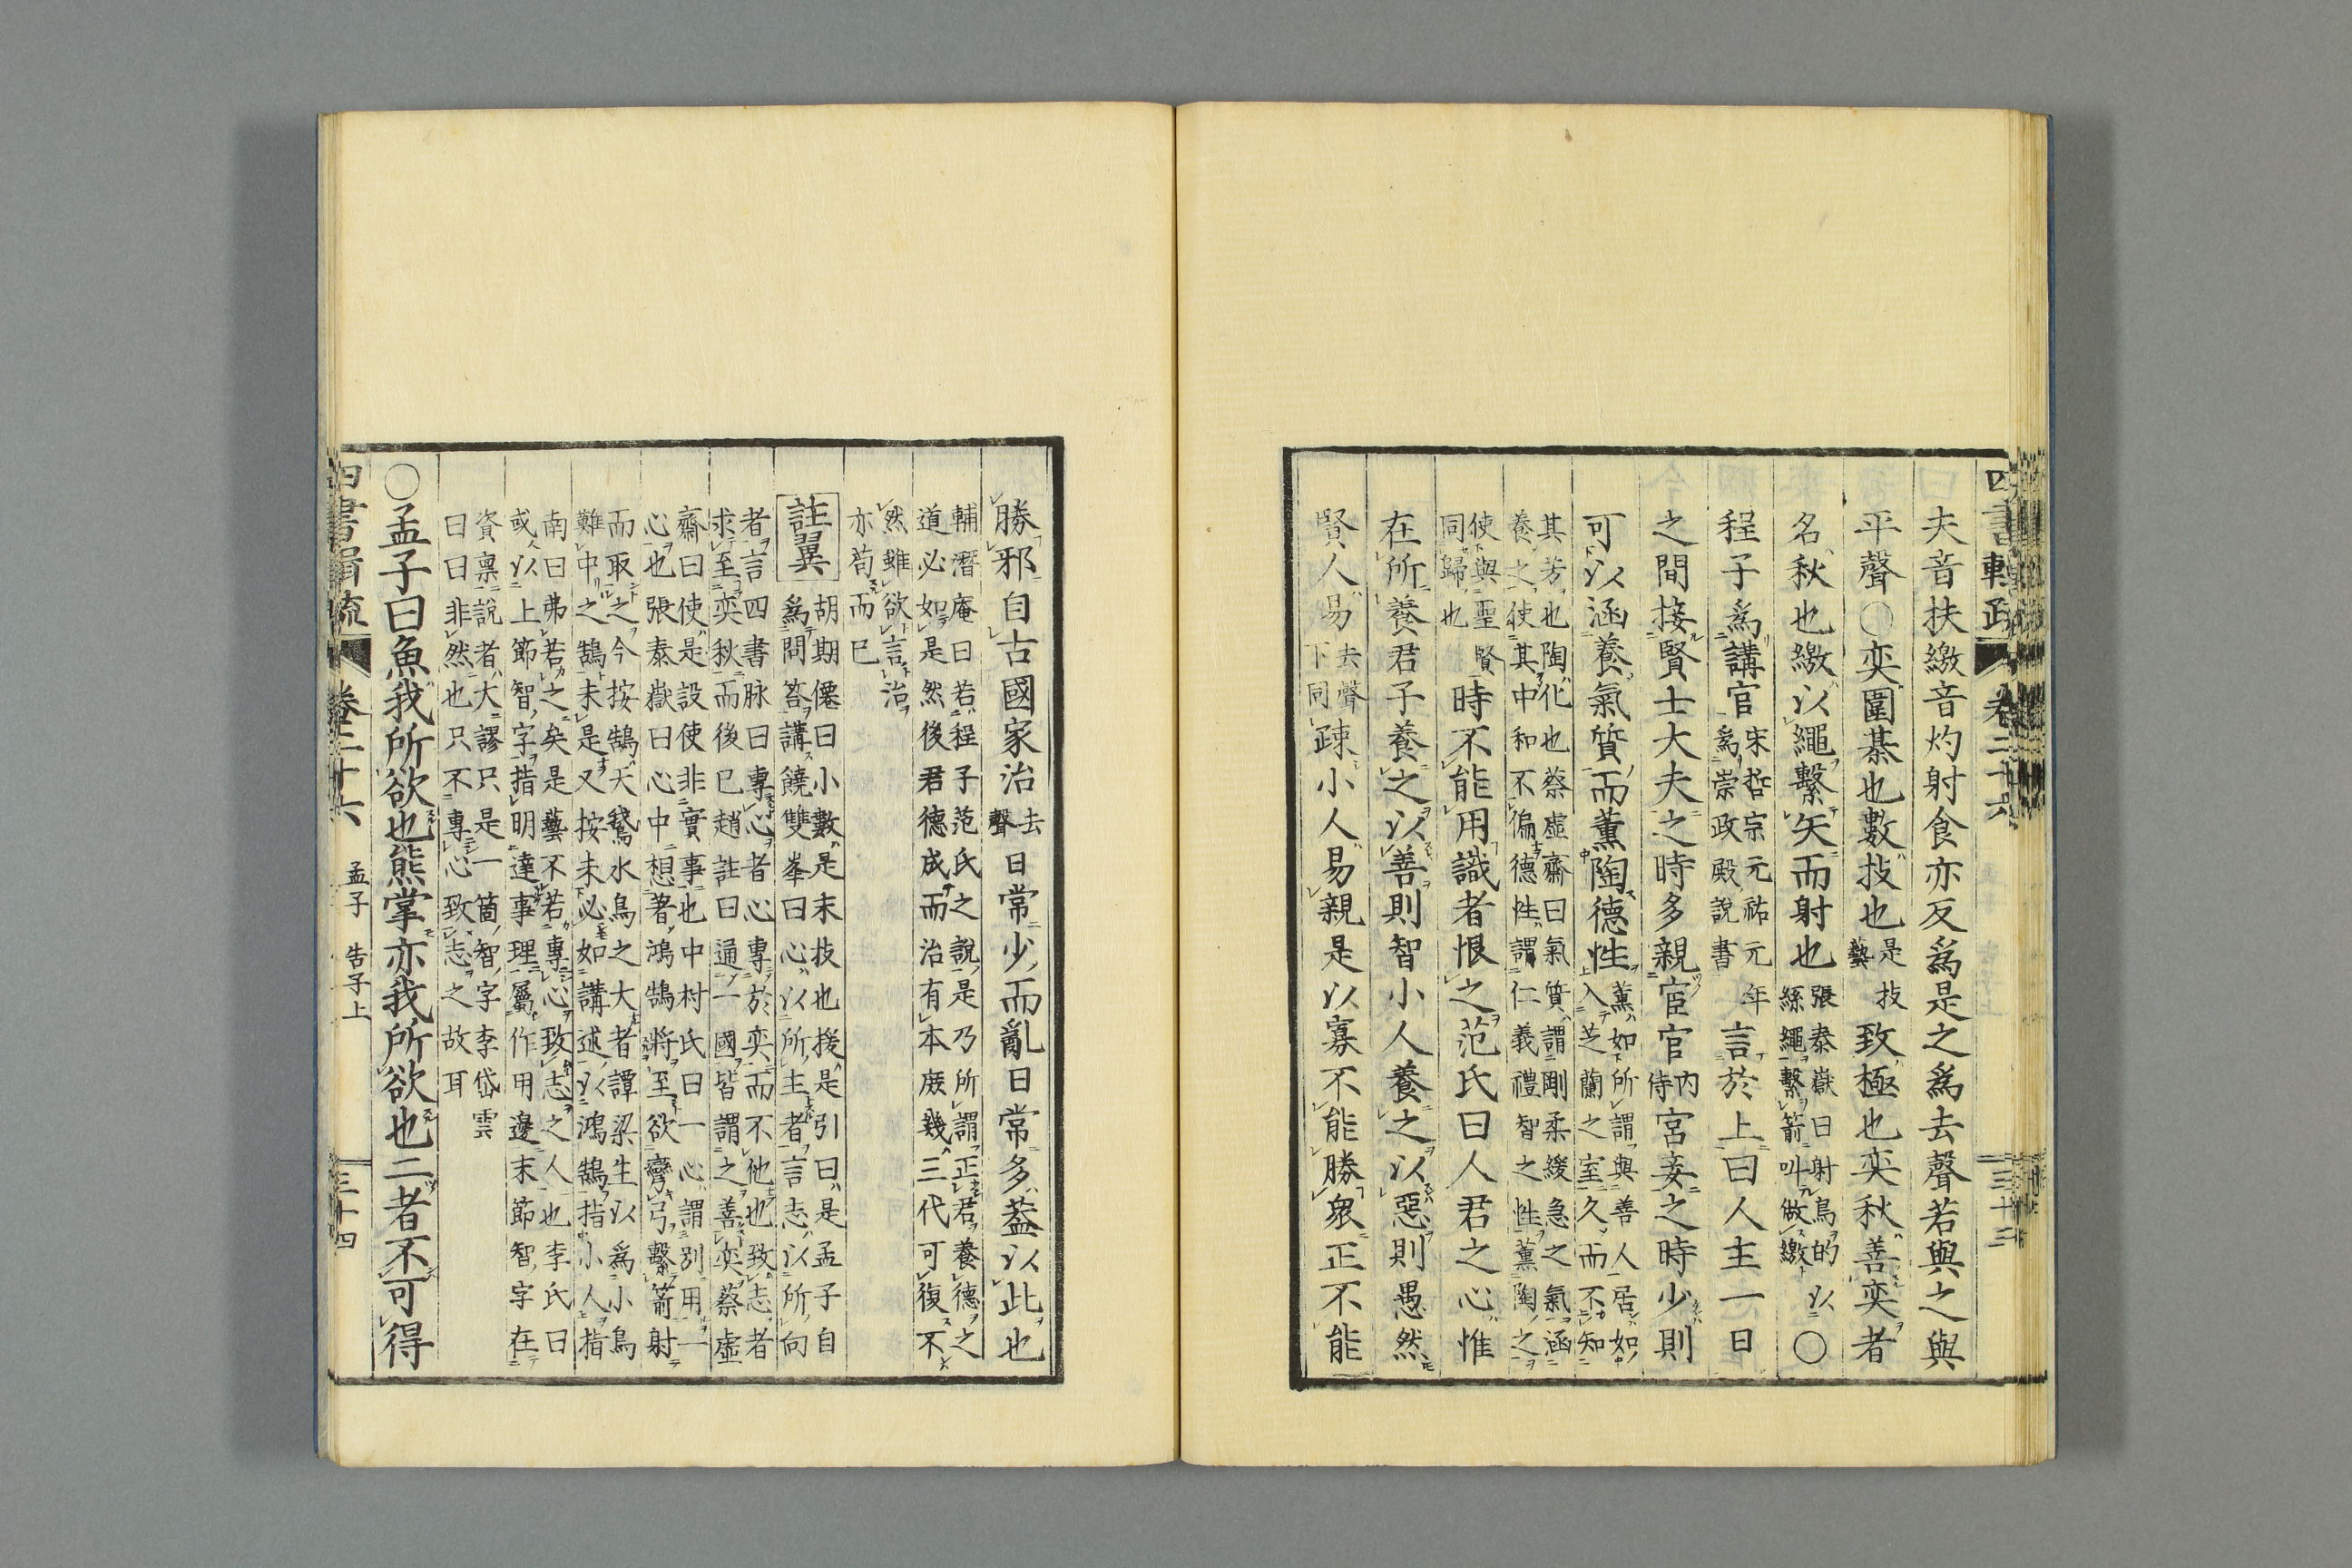 夫音扶繳音灼射食亦反爲是之爲去聲若與之與
平聲○奕圍棊也數技也是技藝致極也奕秋善奕者
名秋也繳以繩繫矢而射也張泰嶽曰射鳥的以絲繩繫箭叫做繳○
程子爲講官宋哲宗元祐元年爲崇政殿說書言於上曰人主一日
之間接賢士大夫之時多親宦官內侍宮妾之時少則
可以涵養氣質而薰陶德性薰如所謂與善人居如入芝蘭之室久而不知
其芳也陶化也蔡虛齋曰氣質謂剛柔緩急之氣涵養之使其中和不偏德性謂仁義禮智之性薰陶之
使與聖賢同歸也時不能用識者恨之范氏曰人君之心惟
在所養君子養之以善則智小人養之以惡則愚然
賢人易去聲下同疎小人易親是以寡不能勝衆正不能
四書輯疏 卷二十六 三十三
勝邪自古國家治去聲日常少而亂日常多蓋以此也
輔潛庵曰若程子范氏之說是乃所謂正君養德之
道必如是然後君德成而治有本庶幾三代可復不
然雖欲言治
亦苟而已
註翼
胡期僊曰小數是末技也援是引曰是孟子自
爲問答講饒雙峯曰心以所主者言志以所向
者言四書脉曰專心者心專於奕而不他也致志者
求至奕秋而後已趙註曰通一國皆謂之善奕蔡虛
齋曰使是設使非實事也中村氏曰一心謂別用一
心也張泰嶽曰心中想著鴻鵠將至欲彎弓繫箭射
而取之今按鵠天鵞水鳥之大者譚梁生以爲小鳥
難中之鵠未是又按未必如講述以鴻鵠指小人指
南曰弗若之矣是藝不若專心致志之人也李氏曰
或以上節智字指明達事理屬作用邊末節智字在
資禀說者大謬只是一箇智字李岱雲
曰曰非然也只不專心致志之故耳
○孟子曰魚我所欲也熊掌亦我所欲也二者不可得
四書輯疏 卷二十六 孟子 告子上 三十四